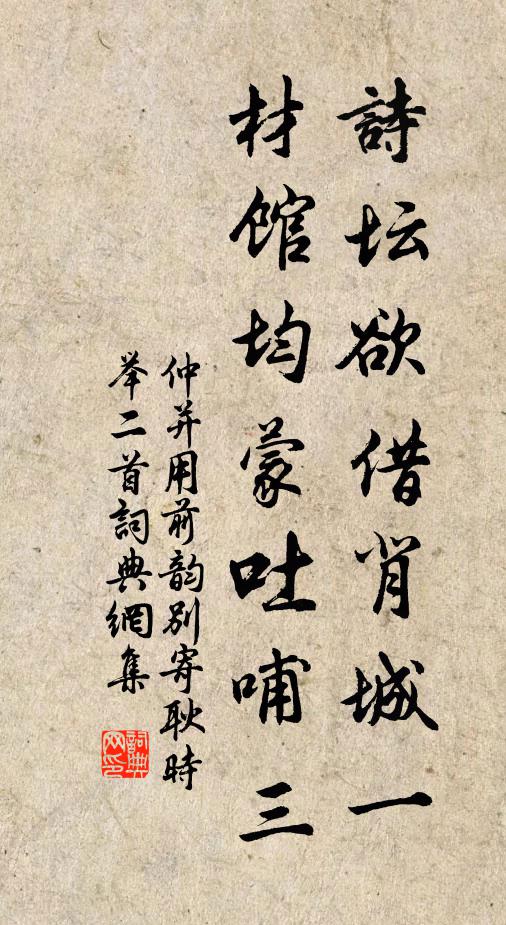 詩坛欲借背城一
材馆均蒙吐哺三
仲并用前韵别寄耿時
举二首詞典網集
詞典网印